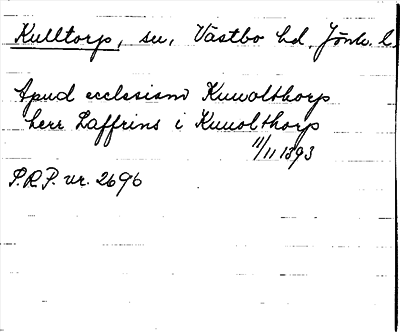 Kulltorp, sn, Västbo hd, Jönk. l.
Apud ecclesiam Kuuolthorp
herr Laffrins i Kuuolthorp
11/11 1393
S.R.P. nr. 2696